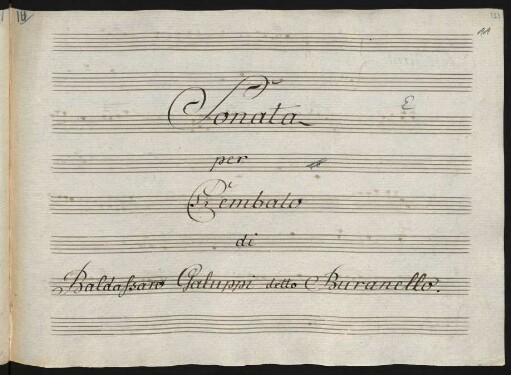 Sonata
E
per
Cembalo
di
Baldassaro Galuppi detto Buranello.